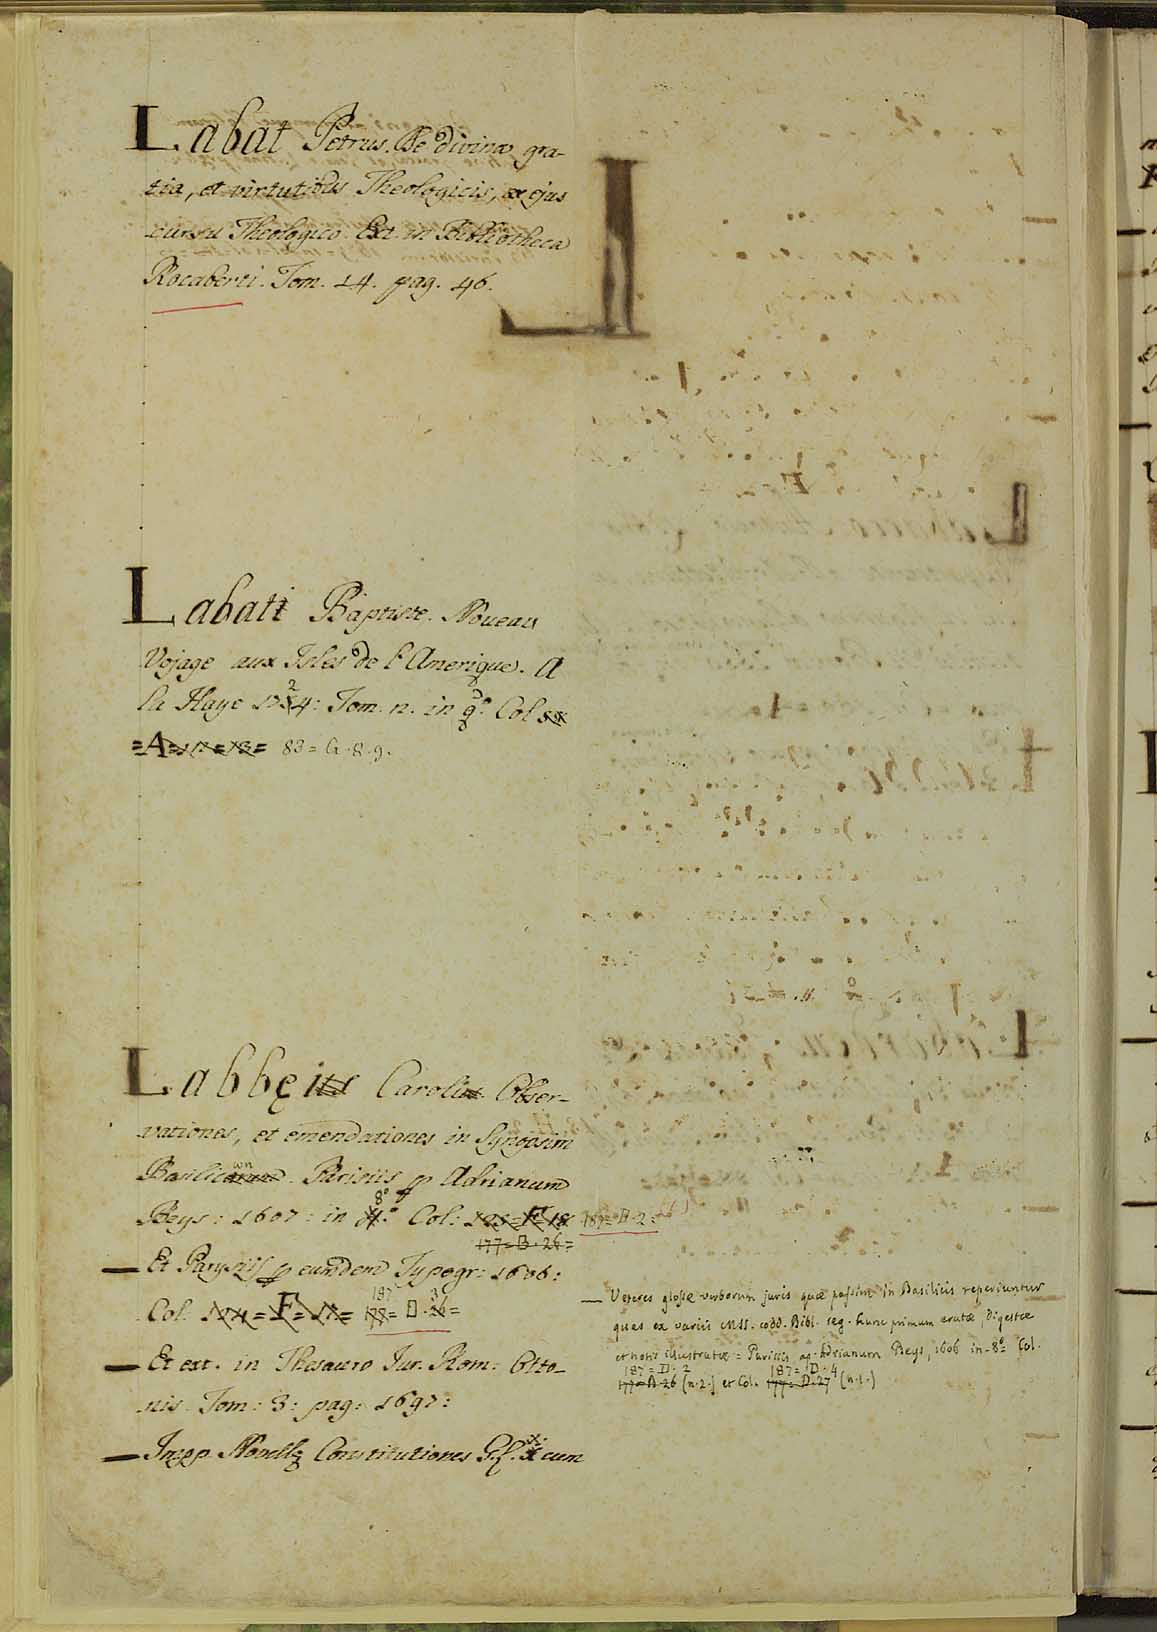 Labat Petrus. De divina gra-
tia, et virtutibus Theologicis, ex ejus
cursu Theologico. Ext. in Bibliotheca
Rocaberti. Tom. 14. pag. 46.
Labati Baptiste. Noueau
Vojage aux Isles de l'Amerique. A
la Haye 1724: Tom. n. in 8.º Col
83 = G. 8. 9.
Labbęi Caroli Obser-
vationes, et emendationes in Synopsim
Basilicωn. Parisiis p Adrianum
Beys: 1607: in 8.º Col: 187 = D. 2
177 = B. 26 =
Et Parysiis p eumdem Typogr: 1606:
Col. 187 = D. 3 =
Et ext. in Thesauro Jur. Rom: Otto-
nis. Tom: 3: pag: 1697:
Impp. Novellę Constitutiones cum
Veteres glossæ verborum juris quæ passim in Basilicis reperiuntur
quas ex variis MSS. codd. Bibl. reg. hunc primum erutæ, Digestæ
et notis illustratæ = Parisiis ap. Adrianum Beys, 1606 in-8º Col.
187 = D. 2 187 = D. 4
177 = A. 26 (n. 2.) et Col. 177 = D. 27 (n. 1.)